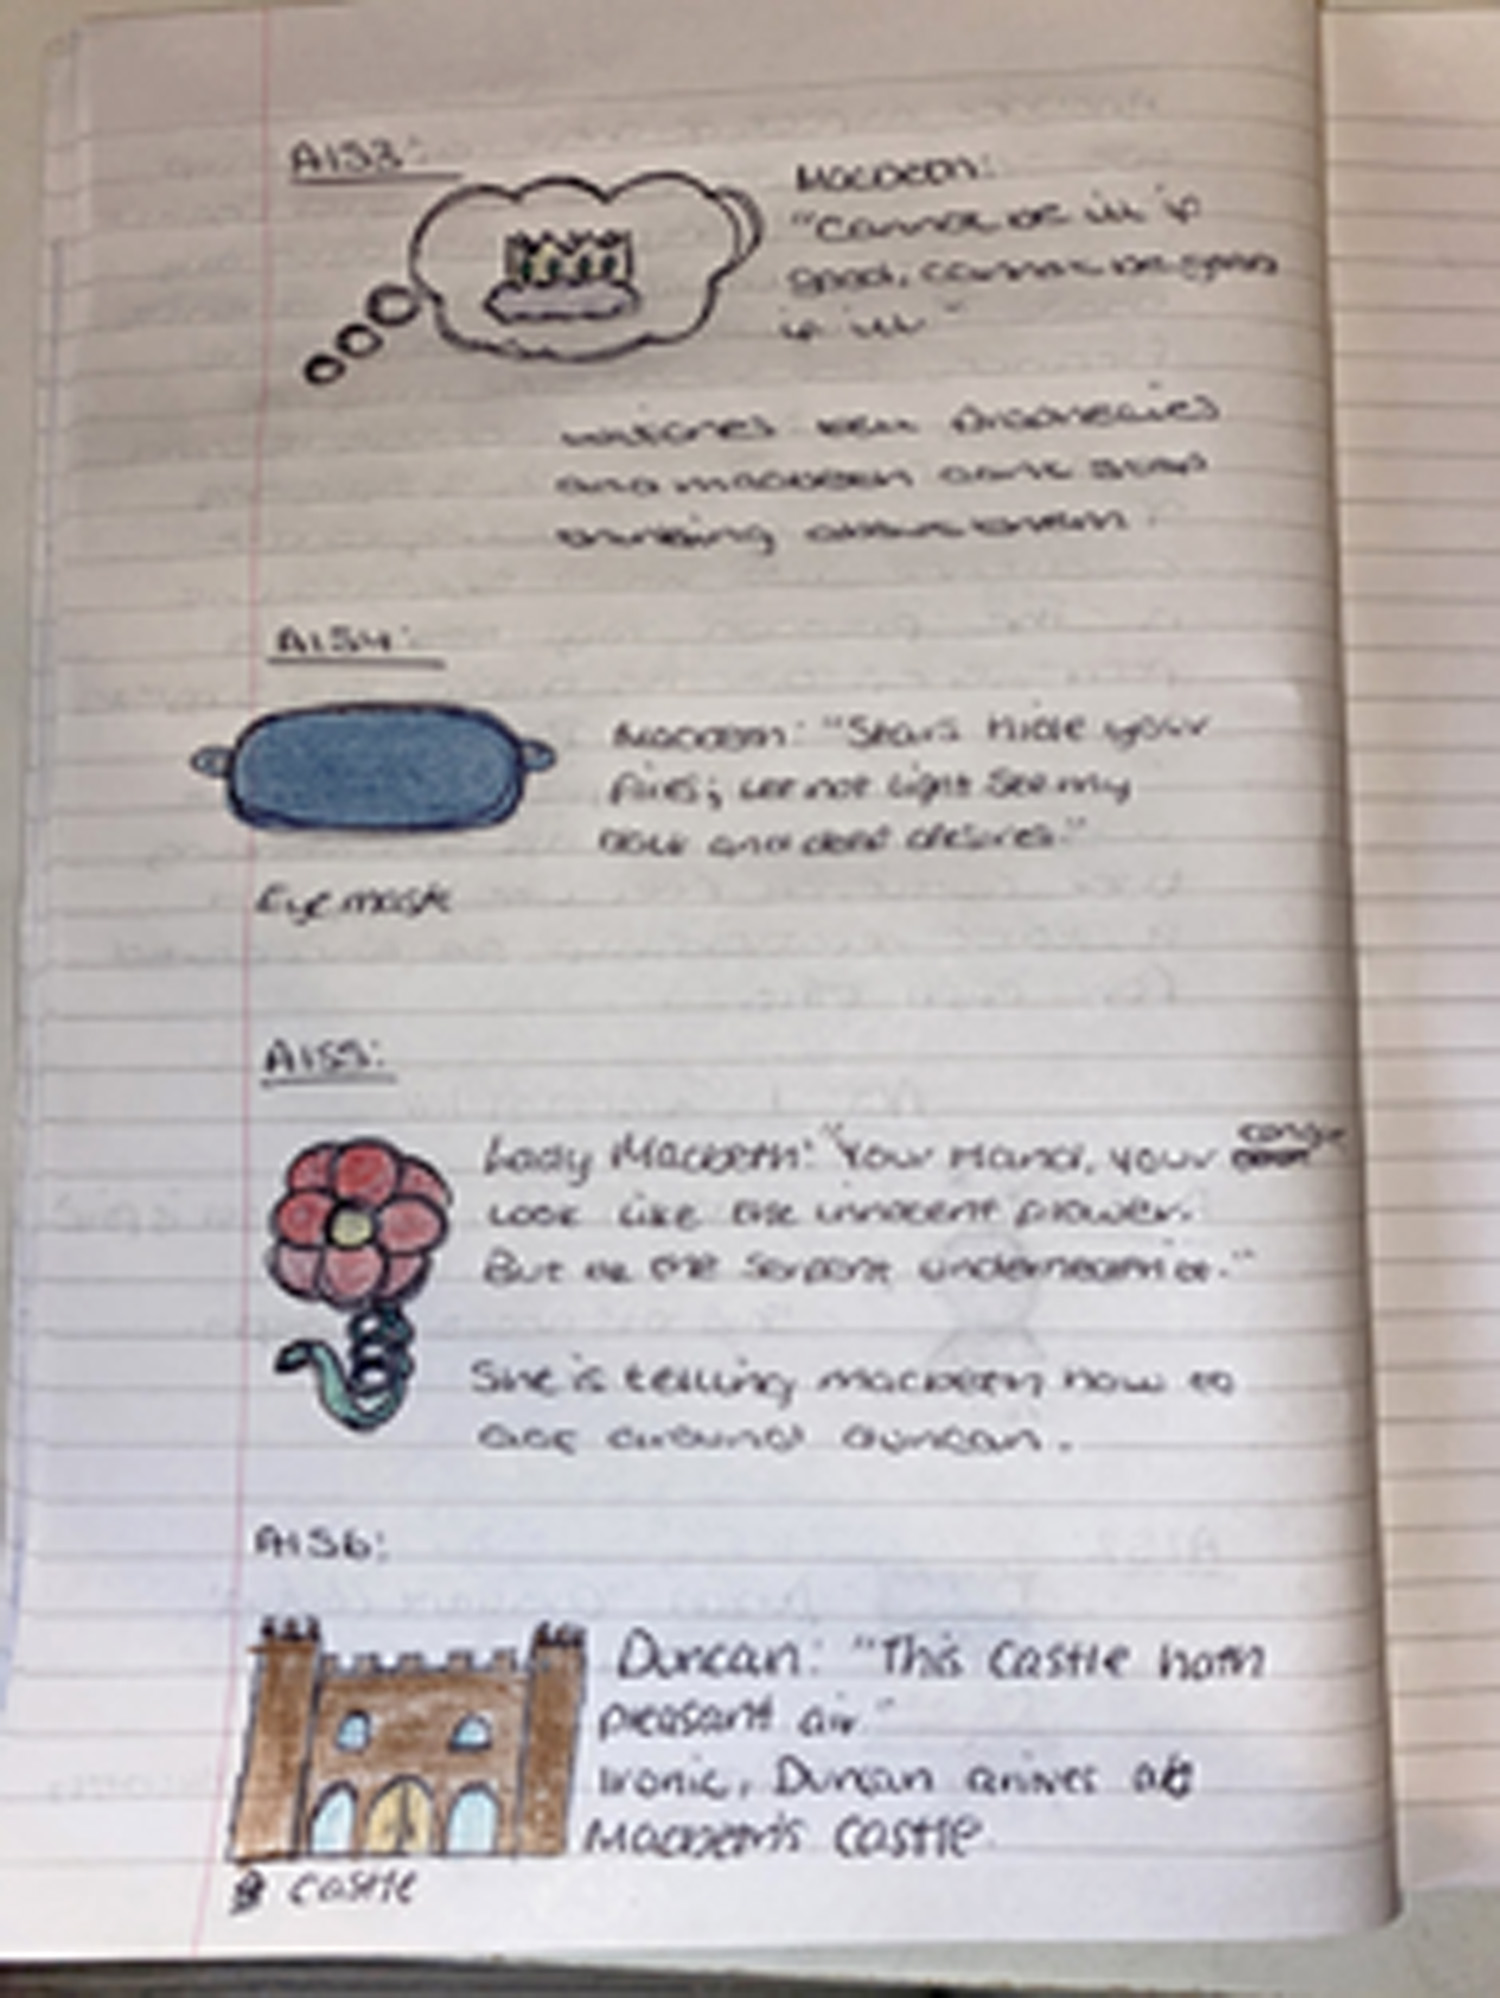 A1S3:
Macbeth:
"Cannot be ill if
good, cannot be good
if ill"
witches tell prophecies
and macbeth cant stop
thinking about them.
A1S4:
Macbeth: "Stars hide your
fires; let not light see my
dark and deep desires."
Eye mask
A1S5:
Lady Macbeth: "Your Hand, your tongue
Look like the innocent flower.
But be the serpent underneath it."
She is telling macbeth how to
act around duncan.
A1S6:
Duncan: "This Castle hath
pleasant air"
Ironic, Duncan arrives at
Macbeth's Castle
Castle